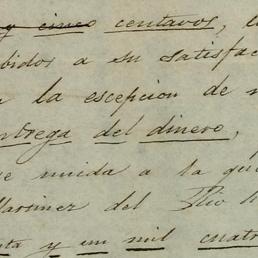 y cinco centavos,
bidos a su satisfac
la escepcion de
ntrega del dinero,
se mida a la que
Martinez del Rio
nta y un mil cuatr